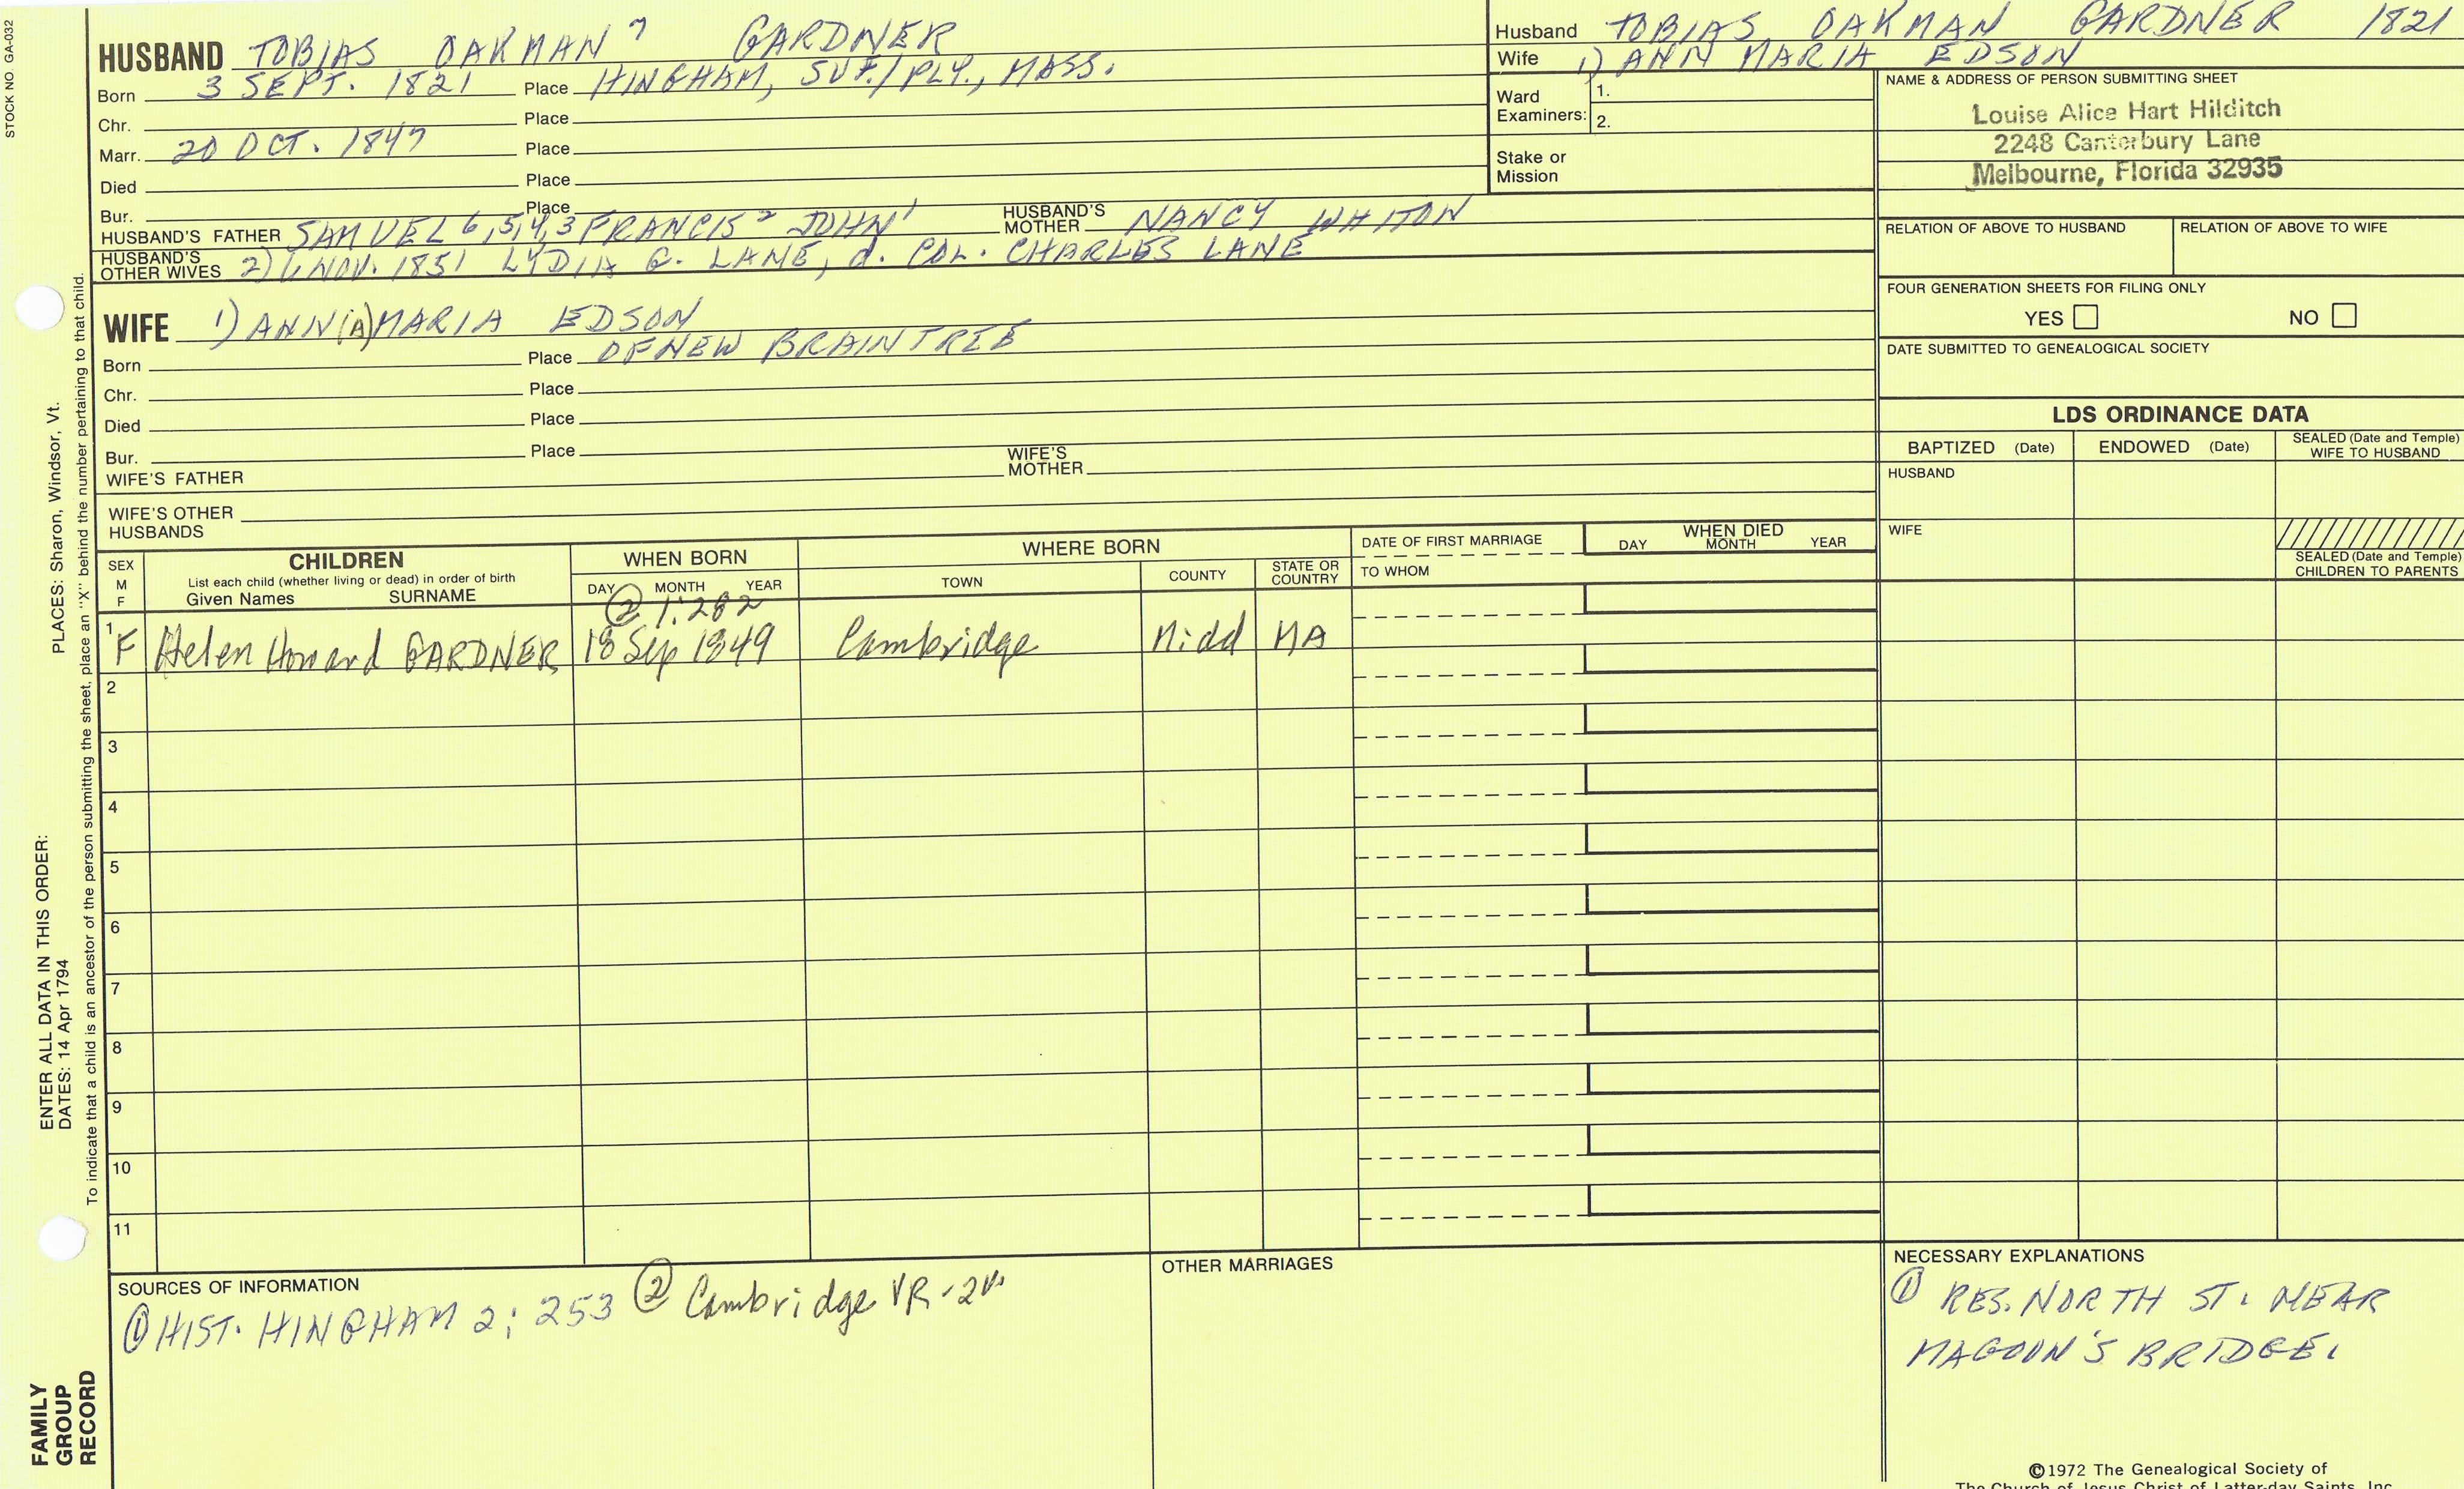 STOCK NO GA-032
HUSBAND TOBIAS OAKMAN 7 GARDNER
Born 3 SEPT. 1821 Place HINGHAM, SUF./PLY., MASS.
Chr. Place
Marr. 20 OCT. 1847 Place
Died Place
Bur. Place
HUSBAND'S FATHER SAMUEL 6,5,4,3 FRANCIS 2 JOHN 1 HUSBAND'S MOTHER NANCY WHITON
HUSBAND'S OTHER WIVES 2) NOV. 1851 LYDIA G. LANE, d. COL. CHARLES LANE
WIFE 1) ANN(A) MARIA EDSON
Born Place OF NEW BRAINTREE
Chr. Place
Died Place
Bur. Place
WIFE'S FATHER WIFE'S MOTHER
WIFE'S OTHER HUSBANDS
Husband TOBIAS OAKMAN GARDNER 1821
Wife 1) ANN MARIA EDSON
Ward Examiners: 1.
2.
Stake or Mission
NAME & ADDRESS OF PERSON SUBMITTING SHEET
Louise Alice Hart Hilditch
2248 Canterbury Lane
Melbourne, Florida 32935
RELATION OF ABOVE TO HUSBAND RELATION OF ABOVE TO WIFE
FOUR GENERATION SHEETS FOR FILING ONLY
YES NO
DATE SUBMITTED TO GENEALOGICAL SOCIETY
LDS ORDINANCE DATA
BAPTIZED (Date) ENDOWED (Date) SEALED (Date and Temple) WIFE TO HUSBAND
HUSBAND
WIFE
SEALED (Date and Temple) CHILDREN TO PARENTS
SEX M F
CHILDREN
List each child (whether living or dead) in order of birth
Given Names SURNAME
WHEN BORN
DAY MONTH YEAR
WHERE BORN
TOWN COUNTY STATE OR COUNTRY
DATE OF FIRST MARRIAGE
TO WHOM
WHEN DIED
DAY MONTH YEAR
② 1:282
1 F Helen Howard GARDNER 18 Sep 1849 Cambridge Midd MA
2
3
4
5
6
7
8
9
10
11
SOURCES OF INFORMATION
① HIST. HINGHAM 2: 253 ② Cambridge VR-2V.
OTHER MARRIAGES
NECESSARY EXPLANATIONS
① RES. NORTH ST. NEAR
MAGOUN'S BRIDGE.
©1972 The Genealogical Society of
The Church of Jesus Christ of Latter-day Saints, Inc.
ENTER ALL DATA IN THIS ORDER: PLACES: Sharon, Windsor, Vt.
DATES: 14 Apr 1794
To indicate that a child is an ancestor of the person submitting the sheet, place an "X" behind the number pertaining to that child.
FAMILY
GROUP
RECORD